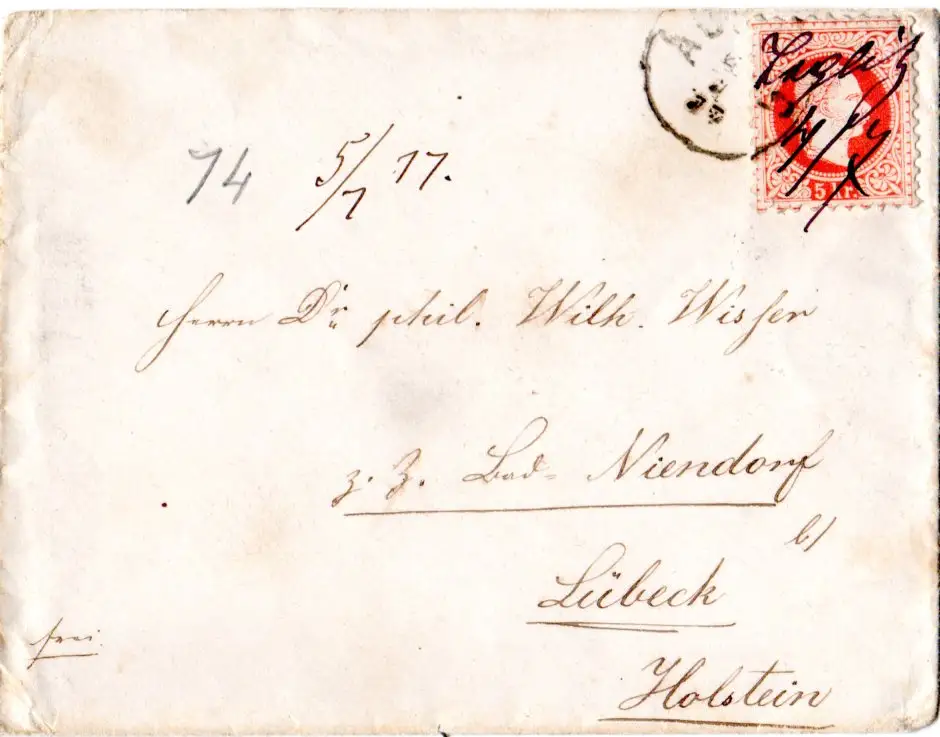 74 5/7 77.
5 Kr.
Herrn Dr. phil. Wilh. Wisser
z. Z. Bad-Niendorf
b/
Lübeck
Holstein
frei.